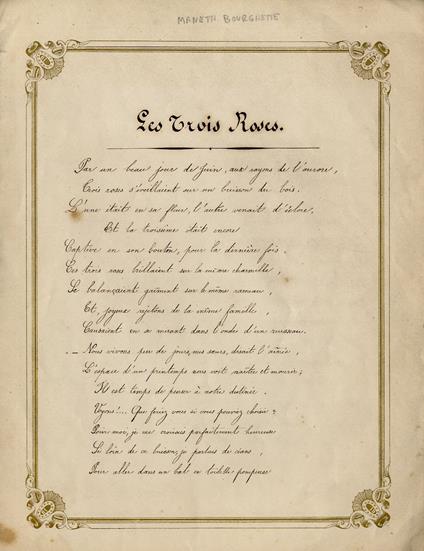 MANETTI BOURGHETTE
Les Trois Roses.
Par un beau jour de Juin, aux rayons de l'aurore,
Trois roses s'éveillaient sur un buisson du bois.
L'une était en sa fleur, l'autre venait d'éclore,
Et la troisième était encore
Captive en son bouton, pour la dernière fois.
Ces trois roses brillaient sur la même charmille,
Se balançaient gaîment sur le même rameau,
Et, joyeux rejetons de la même famille,
Causaient en se mirant dans l'onde d'un ruisseau.
– Nous vivons peu de jours, mes sœurs, disait l'aînée,
L'espace d'un printemps nous voit naître et mourir;
Il est temps de penser à notre destinée.
Voyons!... Que feriez vous si vous pouviez choisir?
Pour moi, je me croirais parfaitement heureuse
Si loin de ce buisson, je partais de céans,
Pour aller dans un bal en toilette pompeuse